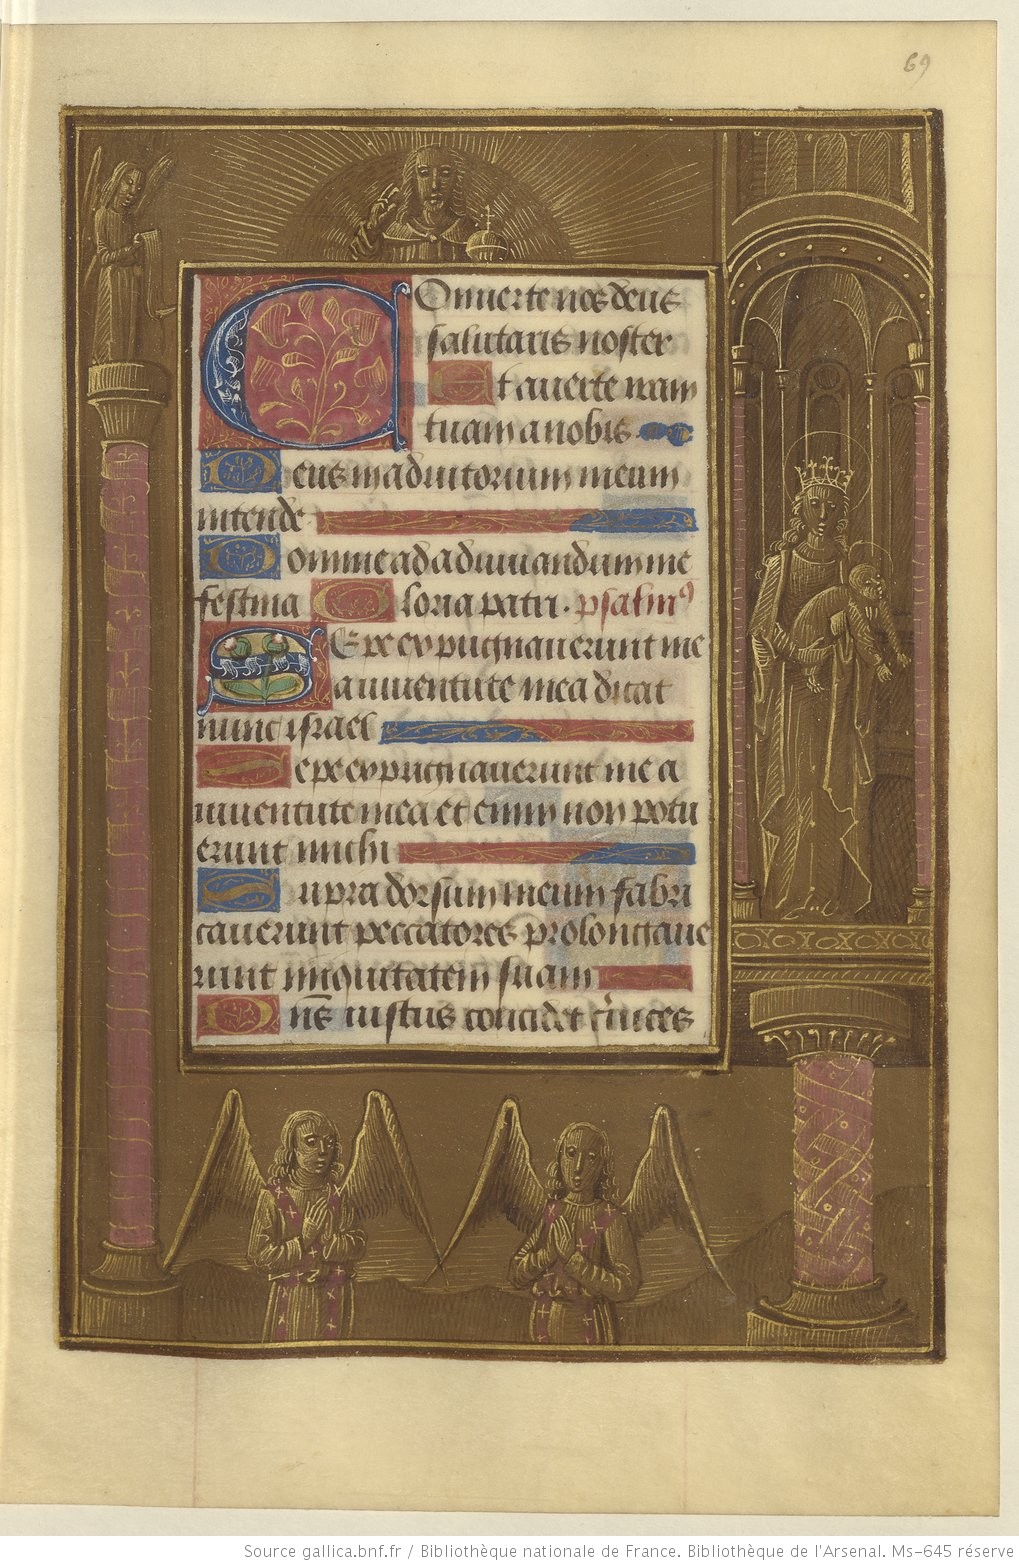 69
Conuerte nos deus
salutaris noster
Et auerte iram
tuam a nobis
Deus in adiutorium meum
intende
Domine ad adiuuandum me
festina Gloria patri. psalmꝰ
Sepe expugnauerunt me
a iuuentute mea dicat
nunc israel
Sepe expugnauerunt me a
iuuentute mea et enim non potu
erunt michi
Supra dorsum meum fabri
cauerunt peccatores prolongaue
runt iniquitatem suam
Dn̄s iustus concidet
Source gallica.bnf.fr / Bibliothèque nationale de France. Bibliothèque de l'Arsenal. Ms-645 réserve